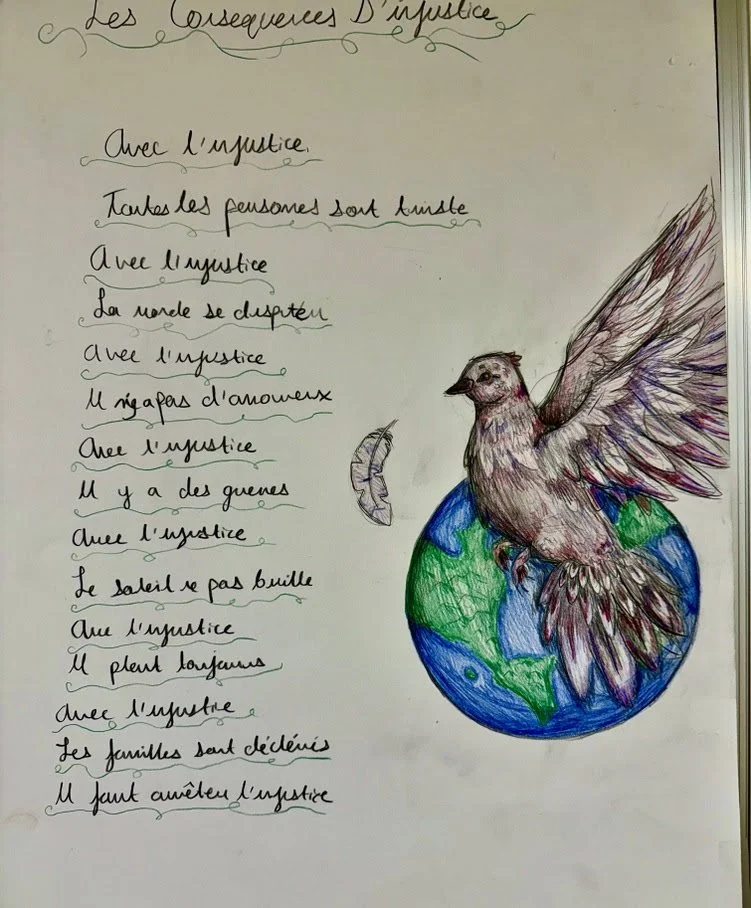 Les Consequences D'injustice
Avec l'injustice.
Toutes les personnes sont triste
Avec l'injustice
La monde se disputer
Avec l'injustice
Il n'ya pas d'amoureux
Avec l'injustice
Il y a des guerres
Avec l'injustice
Le soleil ne pas brille
Avec l'injustice
Il pleut toujours
Avec l'injustice
Les familles sont déchirés
Il faut arrêter l'injustice